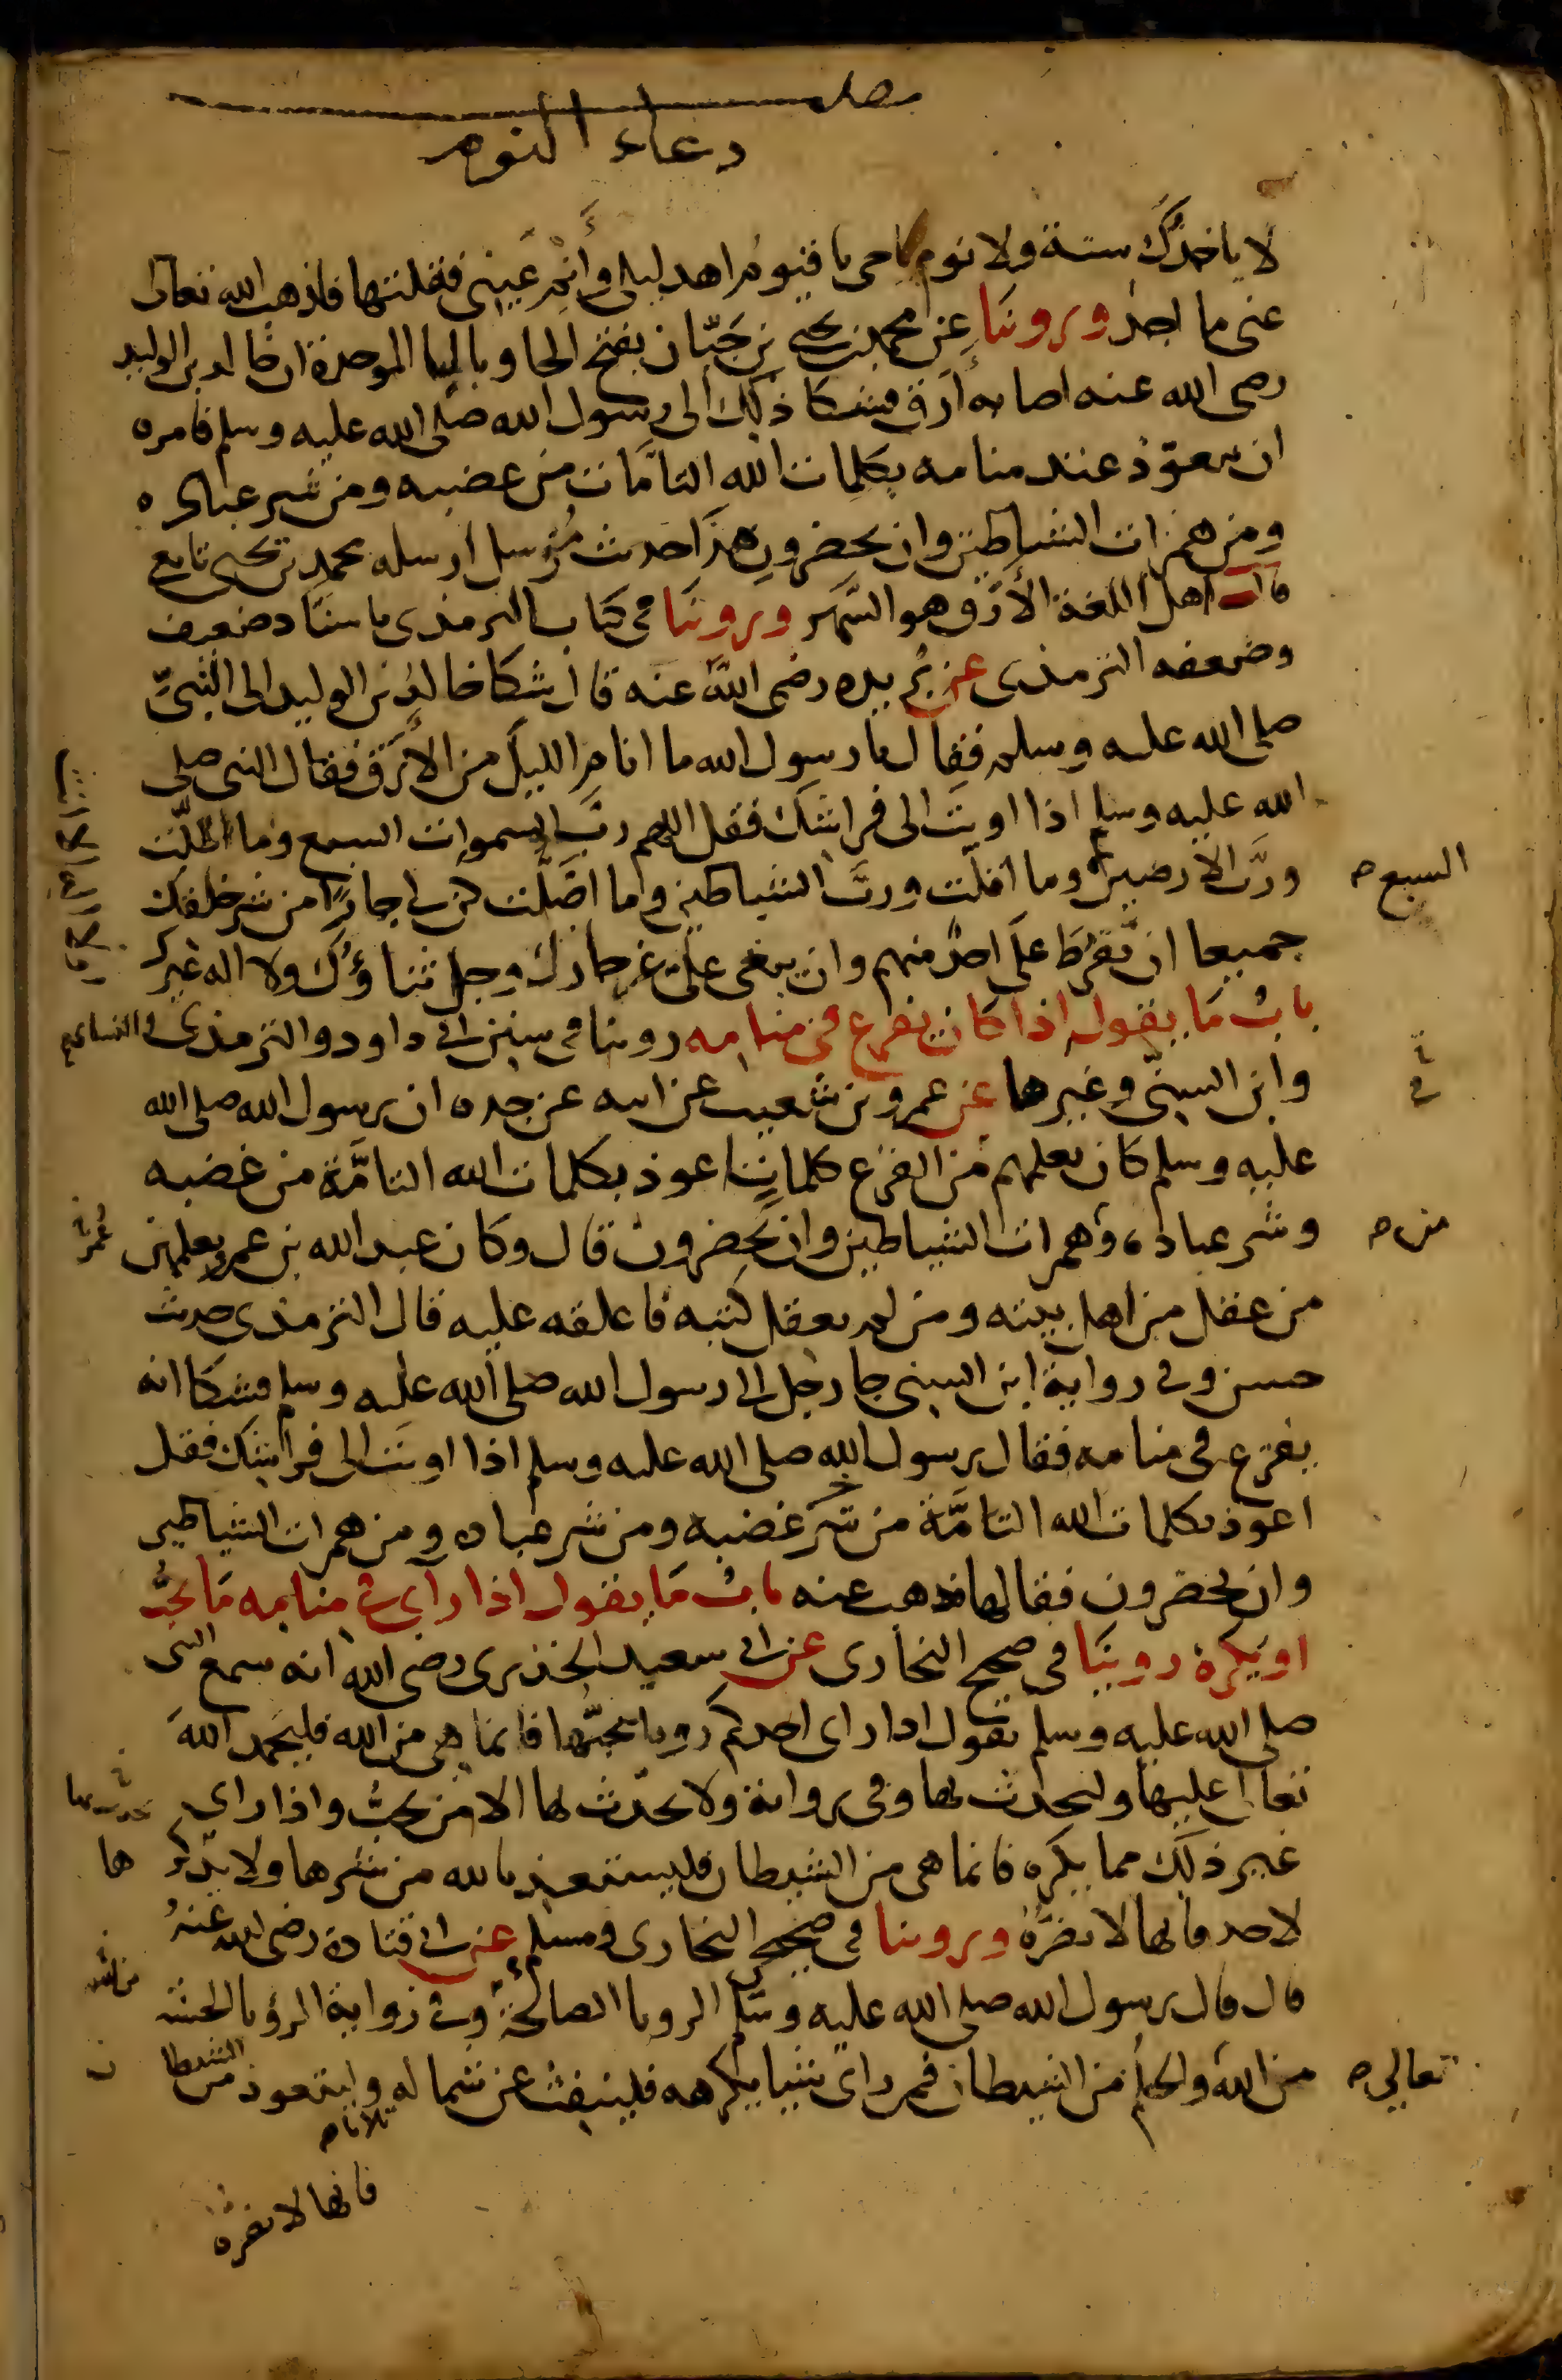 دعاء النوم
لا ياخذك سنة ولا نوم يا حى يا قيوم اهد ليلى وأنم عينى فقلتها فاذهب الله تعالى
عنى ما اجد وروينا عن محمد بن يحيى بن حبان بفتح الحا وبالبا الموحدة ان خالد بن الوليد
رضى الله عنه اصابه أرق فشكا ذلك الى رسول الله صلى الله عليه وسلم فامره
ان يتعوذ عند منامه بكلمات الله التامات من غضبه ومن شر عباده
ومن همزات الشياطين وان يحضرون هذا حديث مرسل ارسله محمد بن يحيى تابعى
قال اهل اللغة الأرق هو السهر وروينا فى كتاب الترمذى باسناد ضعيف
وضعفه الترمذى عن بريده رضى الله عنه قال شكا خالد بن الوليد الى النبى
صلى الله عليه وسلم فقال يا رسول الله ما انام الليل من الأرق فقال النبى صلى
الله عليه وسلم اذا اويت الى فراشك فقل اللهم رب السموات السبع وما اظلت
ورب الارضين وما اقلت ورب الشياطين وما اضلت كن لى جارا من شر خلقك
السبع
جميعا ان يفرط على احد منهم وان يبغى على عز جارك وجل ثناؤك ولا اله غيرك
باب ما يقول اذا كان يفزع فى منامه روينا فى سنن ابى داود والترمذى والنسائى
وابن السنى وغيرها عن عمرو بن شعيب عن ابيه عن جده ان رسول الله صلى الله
عليه وسلم كان يعلمهم من الفزع كلمات اعوذ بكلمات الله التامة من غضبه
وشر عباده وهمزات الشياطين وان يحضرون قال وكان عبد الله بن عمرو يعلمهن
من
من عقل من اهل بيته ومن لم يعقل كتبه فاعلقه عليه قال الترمذى حديث
حسن وفى رواية ابن السنى جا رجل الى رسول الله صلى الله عليه وسلم فشكا انه
يفزع فى منامه فقال رسول الله صلى الله عليه وسلم اذا اويت الى فراشك فقل
اعوذ بكلمات الله التامة من شر غضبه ومن شر عباده ومن همزات الشياطين
وان يحضرون فقالها فذهب عنه باب ما يقول اذا رأى فى منامه ما يحب
او يكره روينا فى صحيح البخارى عن ابى سعيد الخدرى رضى الله انه سمع النبى
صلى الله عليه وسلم يقول اذا راى احدكم رويا يحبها فانما هى من الله فليحمد الله
تعالى عليها وليحدث بها وفى رواية ولا يحدث بها الا من يحب واذا راى
غير ذلك مما يكره فانما هى من الشيطان فليستعذ بالله من شرها ولا يذكرها
لاحد فانها لا تضره وروينا فى صحيح البخارى ومسلم عن ابى قتادة رضى الله عنه
قال قال رسول الله صلى الله عليه وسلم الرويا الصالحة وفى رواية الرؤيا الحسنة
من الله والحلم من الشيطان فمن راى شيا يكرهه فلينفث عن شماله وليتعوذ من الشيطان
تعالى
ثلاثا
فانها لا تضره